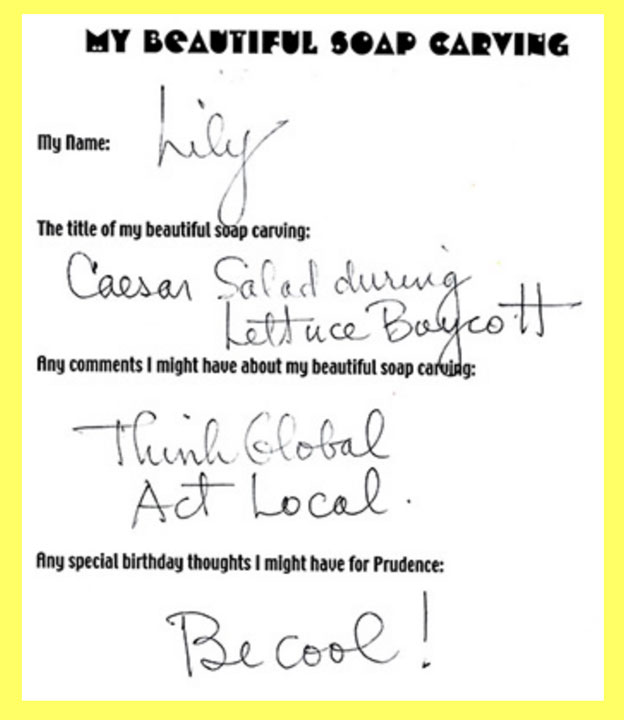 MY BEAUTIFUL SOAP CARVING
My Name: Lily
The title of my beautiful soap carving:
Caesar Salad during
Lettuce Boycott
Any comments I might have about my beautiful soap carving:
Think Global
Act Local.
Any special birthday thoughts I might have for Prudence:
Be cool!